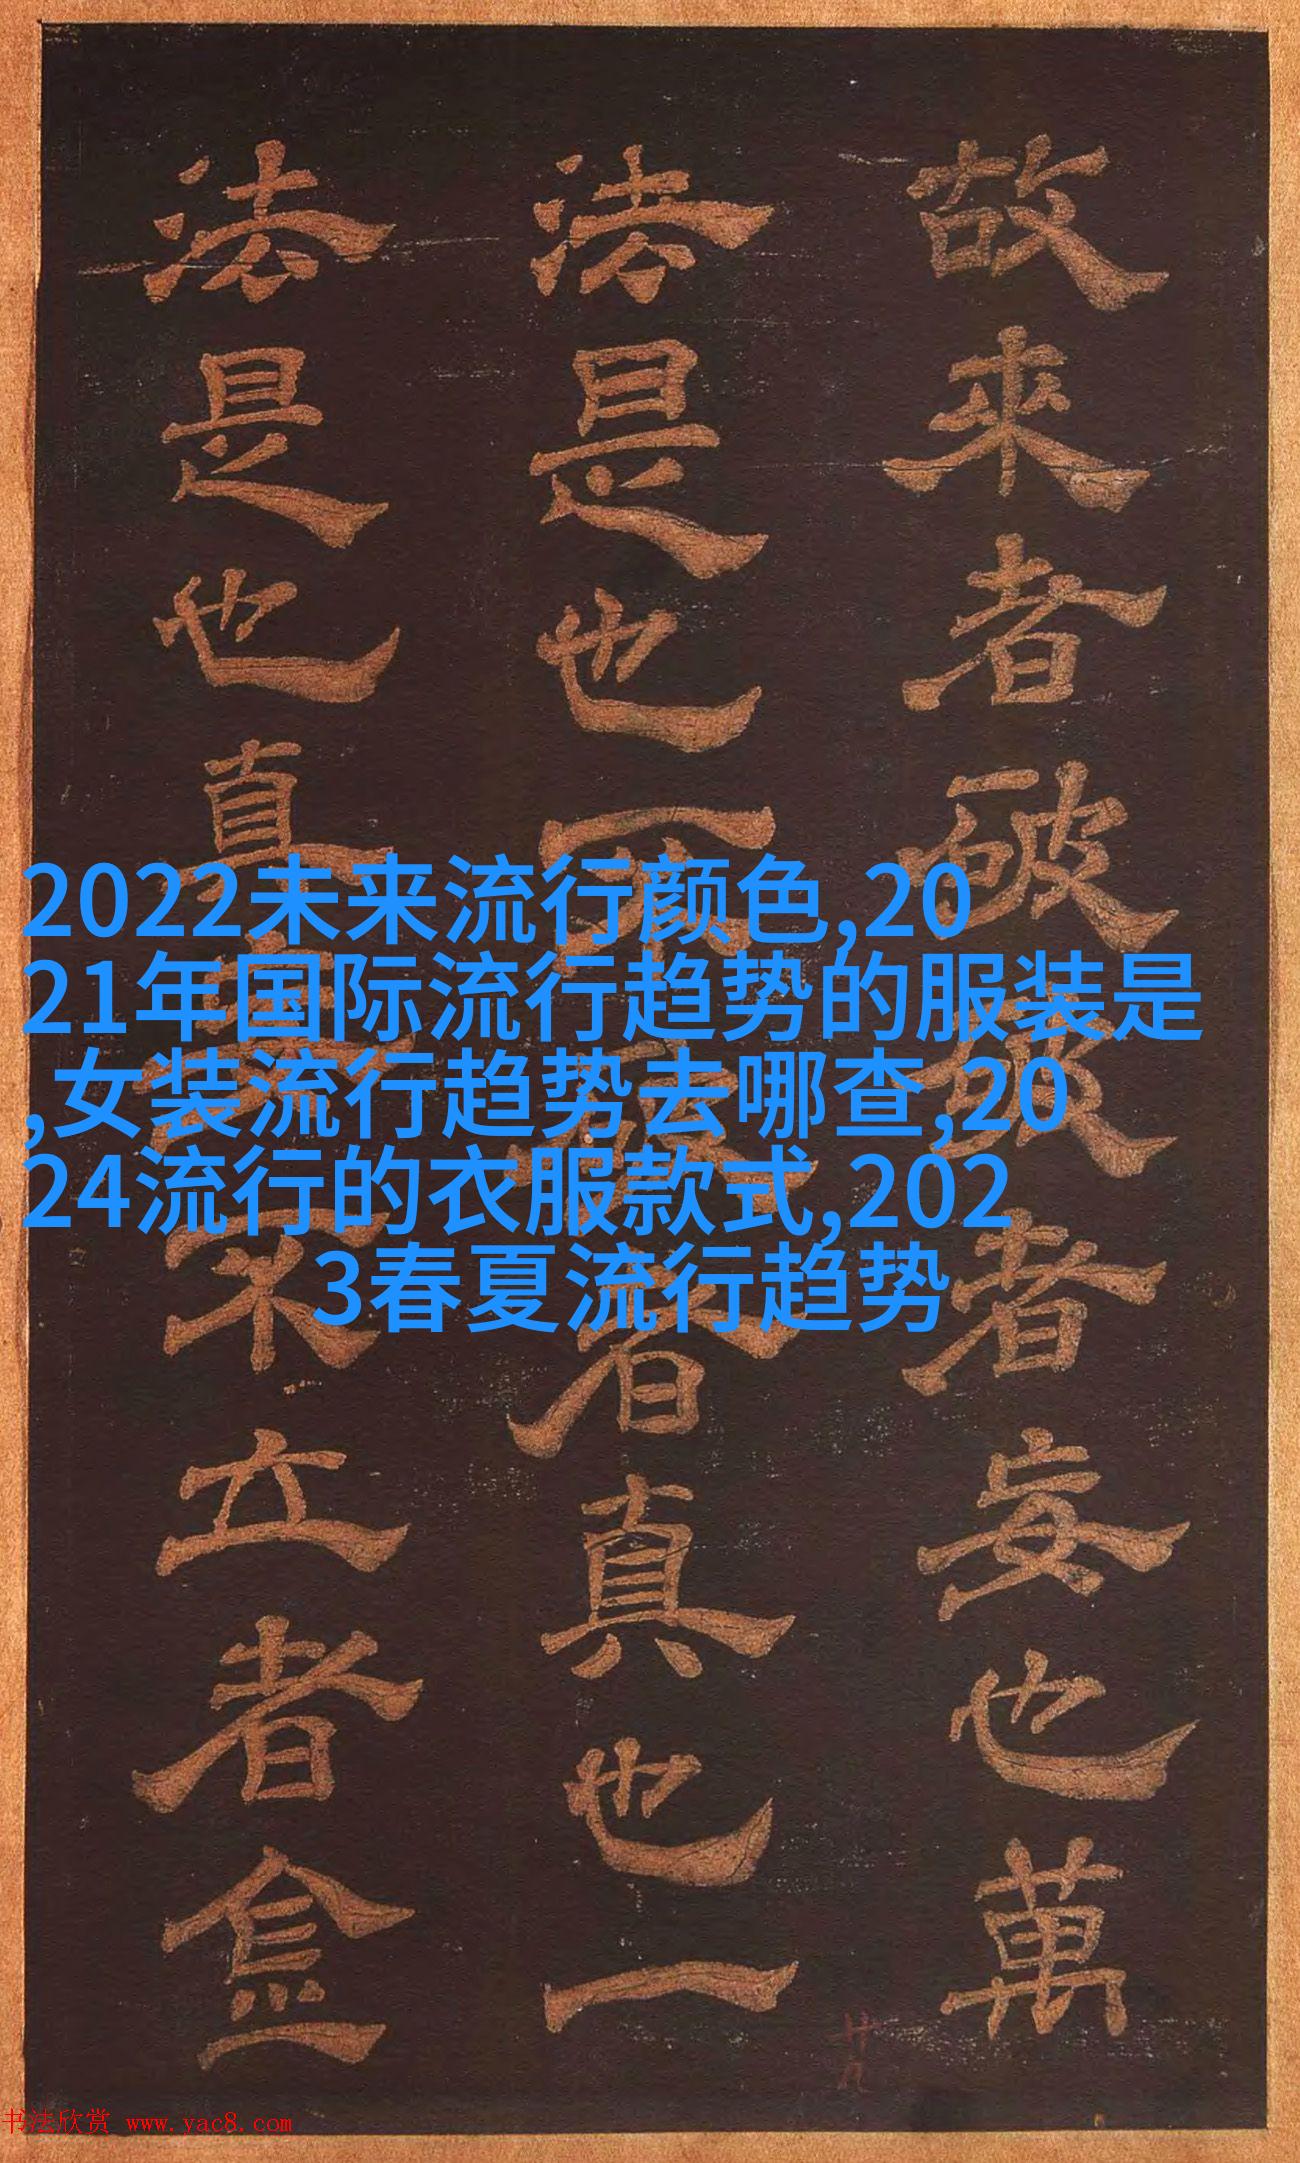 故來者破者妄也萬
法是也不破者真也一
法是也真妄不立者
2022未来流行颜色,20
21年国际流行趋势的服装是
,女装流行趋势去哪查,20
24流行的衣服款式,202
3春夏流行趋势
廿九
书法欣赏 www.yac8.com